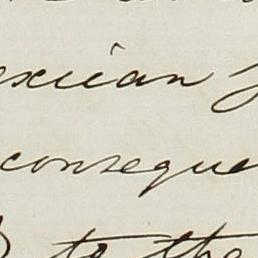 exican
conseque
to the